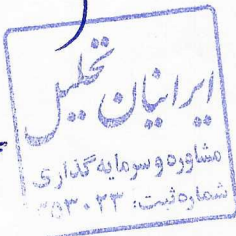 ایرانیان تحلیل
مشاوره و سرمایه گذاری
شماره ثبت: